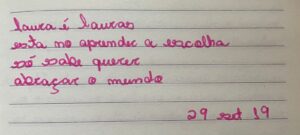 laura é lauras
esta no aprender a escolha
só sabe querer
abraçar o mundo
29 set 19